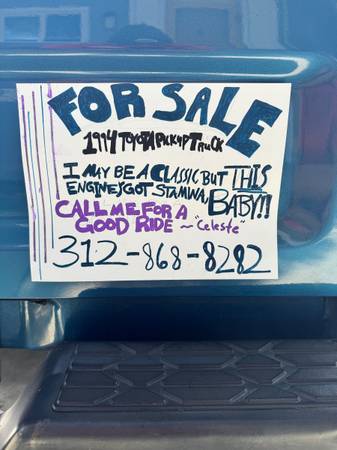 FOR SALE
1994 TOYOTA PICKUP TRUCK
I MAY BE A CLASSIC BUT THIS
ENGINE'S GOT STAMINA, BABY!!
CALL ME FOR A
GOOD RIDE ~ "Celeste"
312-868-8282